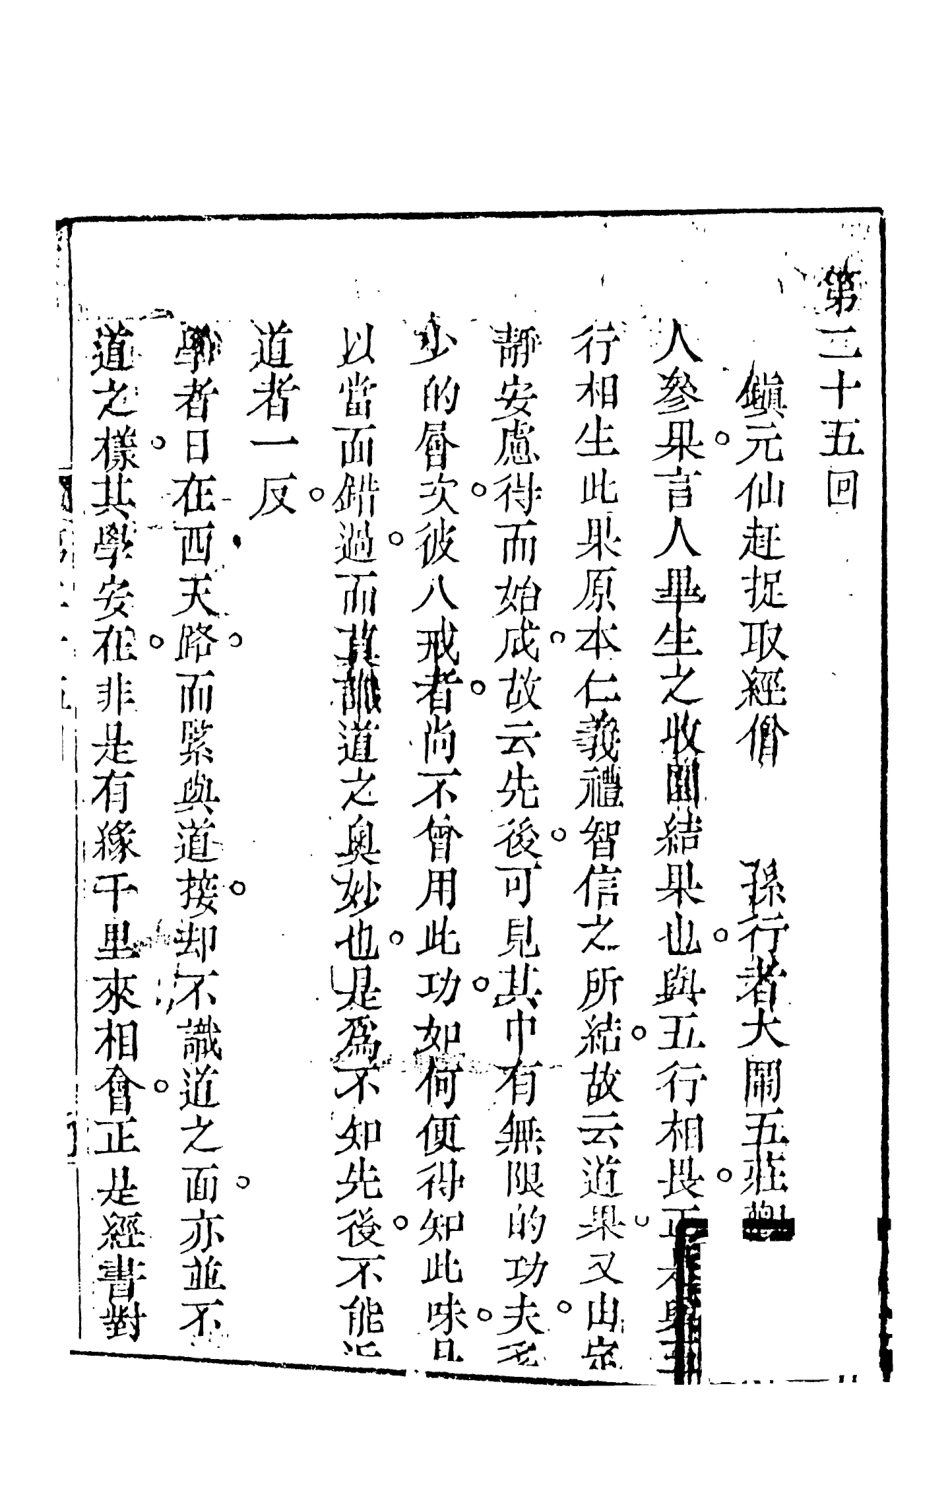 第二十五回
鎮元仙赶捉取經僧　孫行者大鬧五莊觀
人參果。言人畢生之收圓結果也。與五行相畏。正
行相生此果原本仁義禮智信之所結。故云道果。又由定
靜安慮得而始成。故云先後。可見其中有無限的功夫。多
少的層次。彼八戒者。尚不曾用此功。如何便得知此味。
以當面錯過。而莫識道之奧妙也。是爲不知先後。不能近
道者一反。
學者日在西天路。而緊與道接。却不識道之面。亦並不
道之樣。其學安在。非是有緣千里來相會。正是經書對